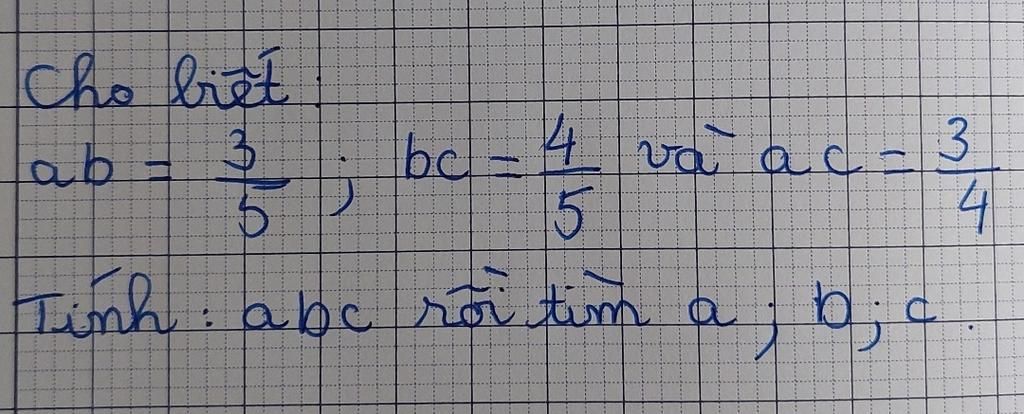 Cho biết:
ab = 3/5 ; bc = 4/5 và ac = 3/4
Tính : abc rồi tìm a ; b ; c .